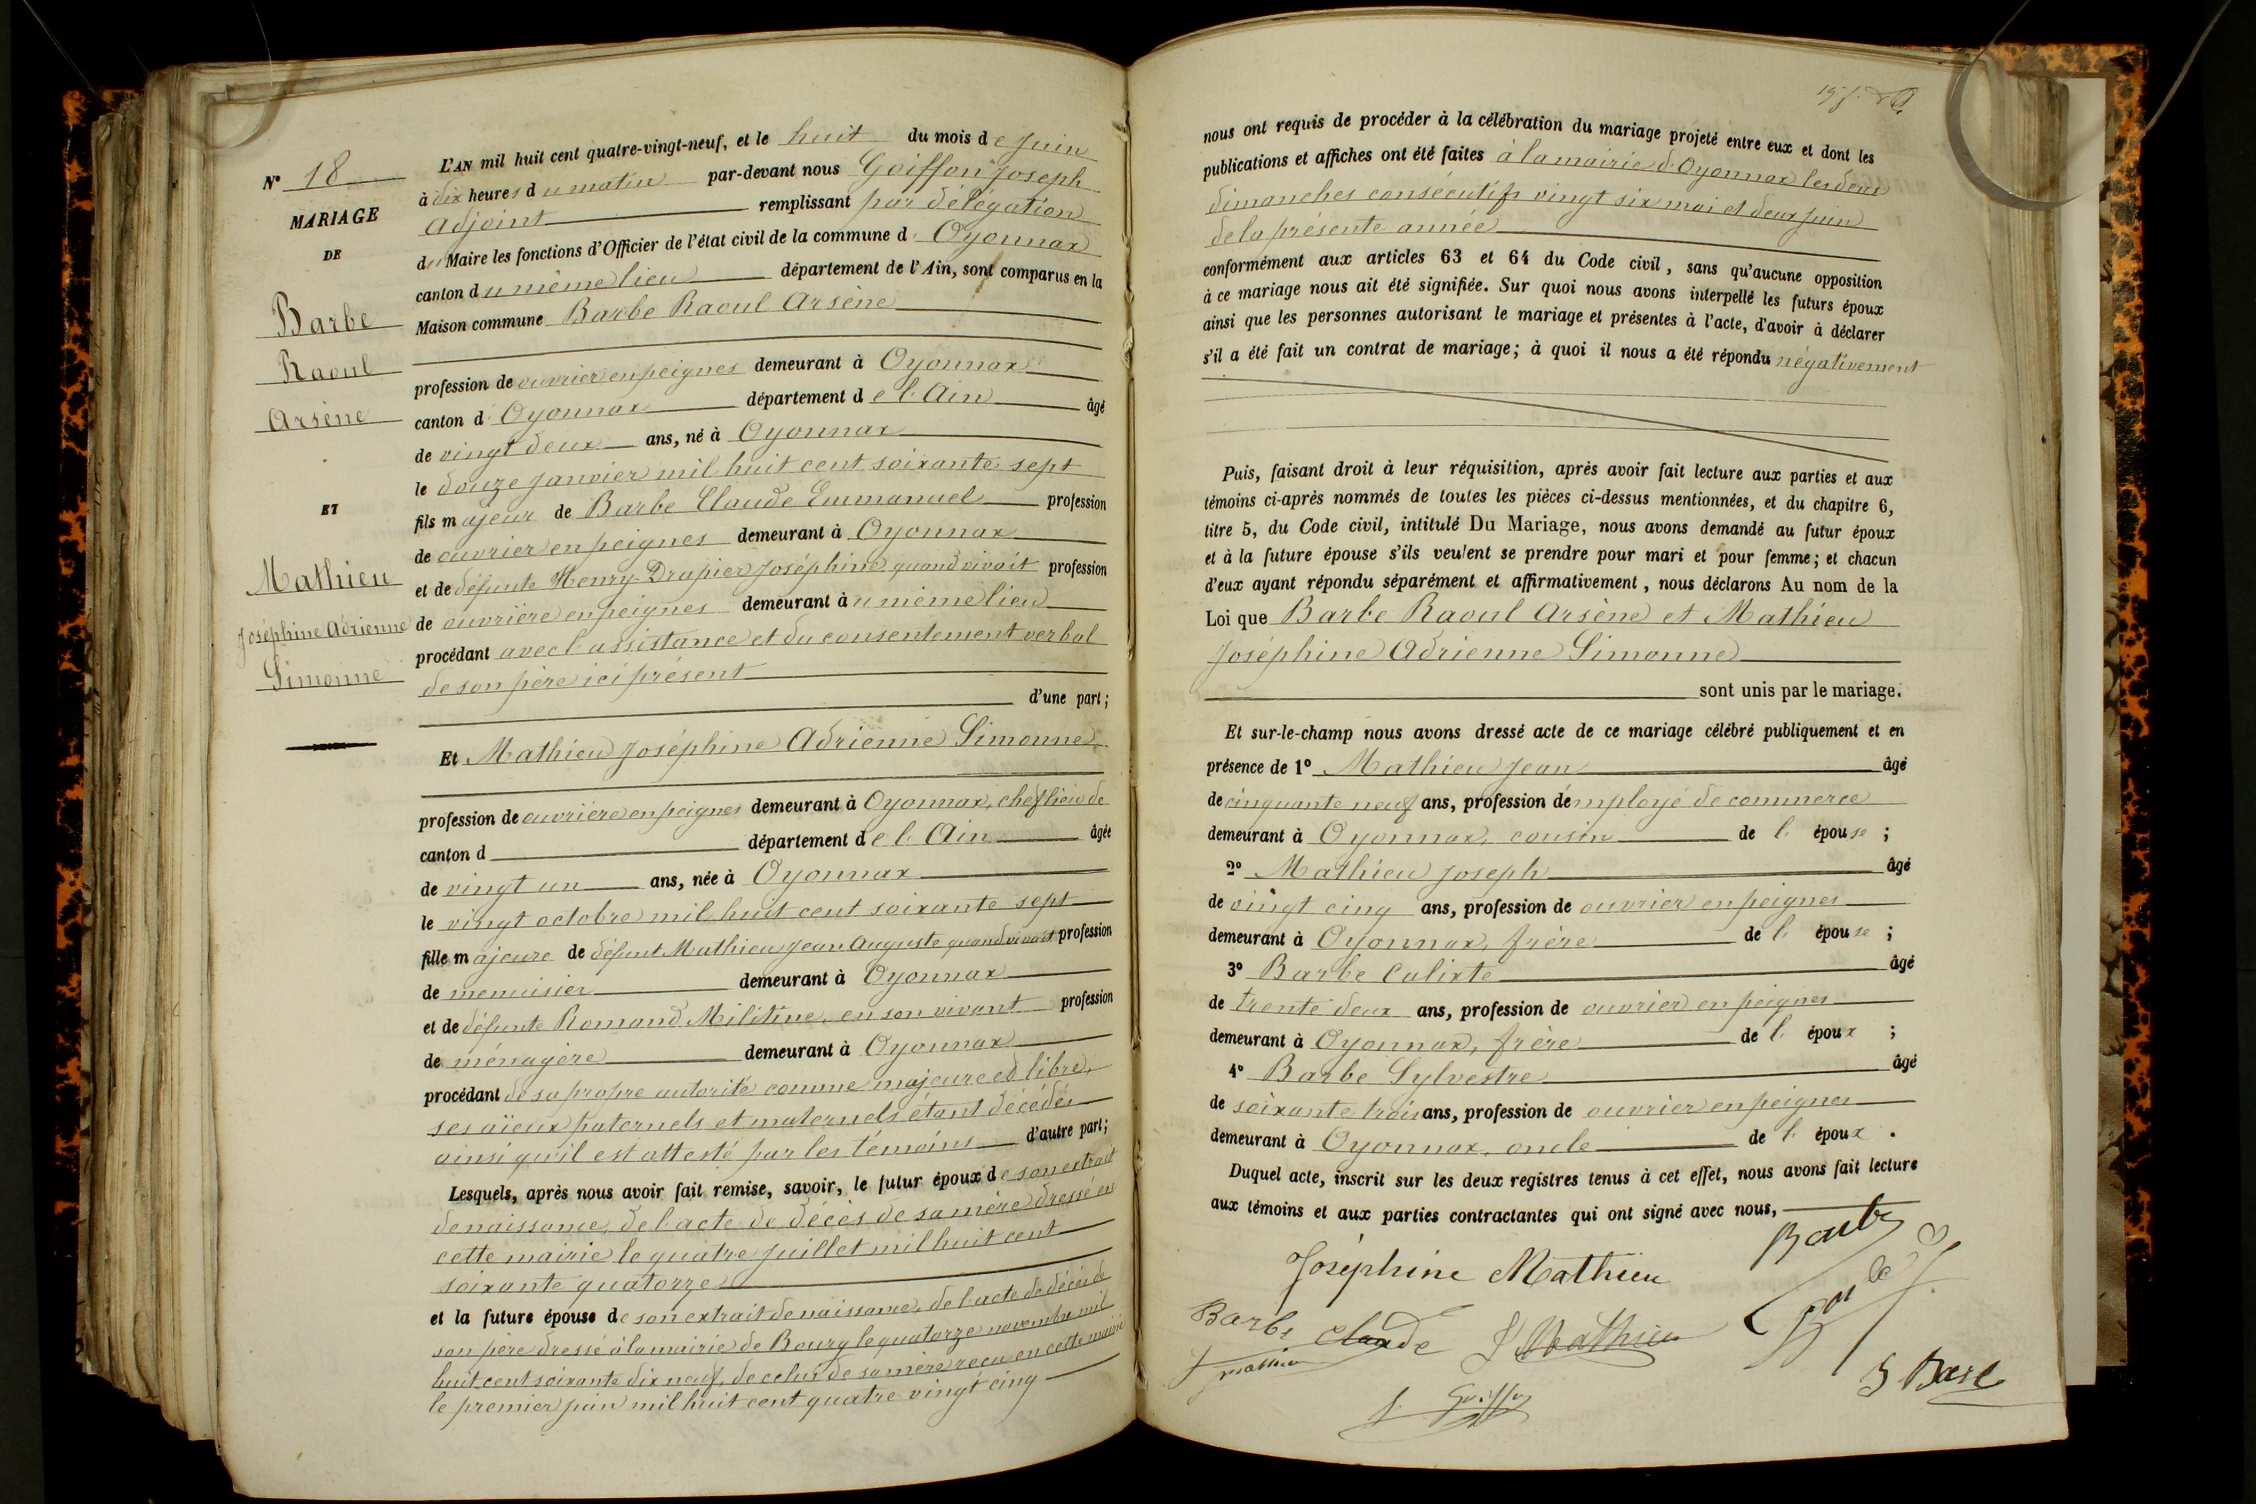 N° 18
MARIAGE
DE
Barbe
Raoul
Arsène
ET
Mathieu
Joséphine Adrienne
Simonne
L'AN mil huit cent quatre-vingt-neuf, et le huit du mois de Juin
à dix heures du matin par-devant nous Goiffon Joseph
Adjoint remplissant par délégation
du Maire les fonctions d'Officier de l'état civil de la commune d'Oyonnax
canton du même lieu département de l'Ain, sont comparus en la
Maison commune Barbe Raoul Arsène
profession de ouvrier en peignes demeurant à Oyonnax
canton d'Oyonnax département de l'Ain âgé
de vingt deux ans, né à Oyonnax
le douze janvier mil huit cent soixante sept
fils majeur de Barbe Claude Emmanuel profession
de ouvrier en peignes demeurant à Oyonnax
et de défunte Henry-Drapier Joséphine quand vivait profession
de ouvrière en peignes demeurant au même lieu
procédant avec l'assistance et du consentement verbal
de son père ici présent
d'une part;
Et Mathieu Joséphine Adrienne Simonne
profession de ouvrière en peignes demeurant à Oyonnax, chef lieu de
canton d département de l'Ain âgée
de vingt un ans, née à Oyonnax
le vingt octobre mil huit cent soixante sept
fille majeure de défunt Mathieu Jean Auguste quand vivait profession
de menuisier demeurant à Oyonnax
et de défunte Romand Militine, en son vivant profession
de ménagère demeurant à Oyonnax
procédant de sa propre autorité comme majeure et libre,
ses aïeux paternels et maternels étant décédés
ainsi qu'il est attesté par les témoins d'autre part;
Lesquels, après nous avoir fait remise, savoir, le futur époux de son extrait
de naissance, de l'acte de décès de sa mère dressé en
cette mairie le quatre juillet mil huit cent
soixante quatorze
et la future épouse de son extrait de naissance, de l'acte de décès de
son père dressé à la mairie de Bourg le quatorze novembre mil
huit cent soixante dix neuf, de celui de sa mère reçu en cette mairie
le premier juin mil huit cent quatre vingt cinq
nous ont requis de procéder à la célébration du mariage projeté entre eux et dont les
publications et affiches ont été faites à la mairie d'Oyonnax les deux
dimanches consécutifs vingt six mai et deux juin
de la présente année
conformément aux articles 63 et 64 du Code civil, sans qu'aucune opposition
à ce mariage nous ait été signifiée. Sur quoi nous avons interpellé les futurs époux
ainsi que les personnes autorisant le mariage et présentes à l'acte, d'avoir à déclarer
s'il a été fait un contrat de mariage; à quoi il nous a été répondu négativement
Puis, faisant droit à leur réquisition, après avoir fait lecture aux parties et aux
témoins ci-après nommés de toutes les pièces ci-dessus mentionnées, et du chapitre 6,
titre 5, du Code civil, intitulé Du Mariage, nous avons demandé au futur époux
et à la future épouse s'ils veulent se prendre pour mari et pour femme; et chacun
d'eux ayant répondu séparément et affirmativement, nous déclarons Au nom de la
Loi que Barbe Raoul Arsène et Mathieu
Joséphine Adrienne Simonne
sont unis par le mariage.
Et sur-le-champ nous avons dressé acte de ce mariage célébré publiquement et en
présence de 1° Mathieu Jean âgé
de cinquante neuf ans, profession d'employé de commerce
demeurant à Oyonnax, cousin de l'épouse;
2° Mathieu Joseph âgé
de vingt cinq ans, profession de ouvrier en peignes
demeurant à Oyonnax, frère de l'épouse;
3° Barbe Calixte âgé
de trente deux ans, profession de ouvrier en peignes
demeurant à Oyonnax, frère de l'époux;
4° Barbe Sylvestre âgé
de soixante trois ans, profession de ouvrier en peignes
demeurant à Oyonnax, oncle de l'époux.
Duquel acte, inscrit sur les deux registres tenus à cet effet, nous avons fait lecture
aux témoins et aux parties contractantes qui ont signé avec nous,
Joséphine Mathieu
Barbe Claude
J Mathieu
J Mathieu